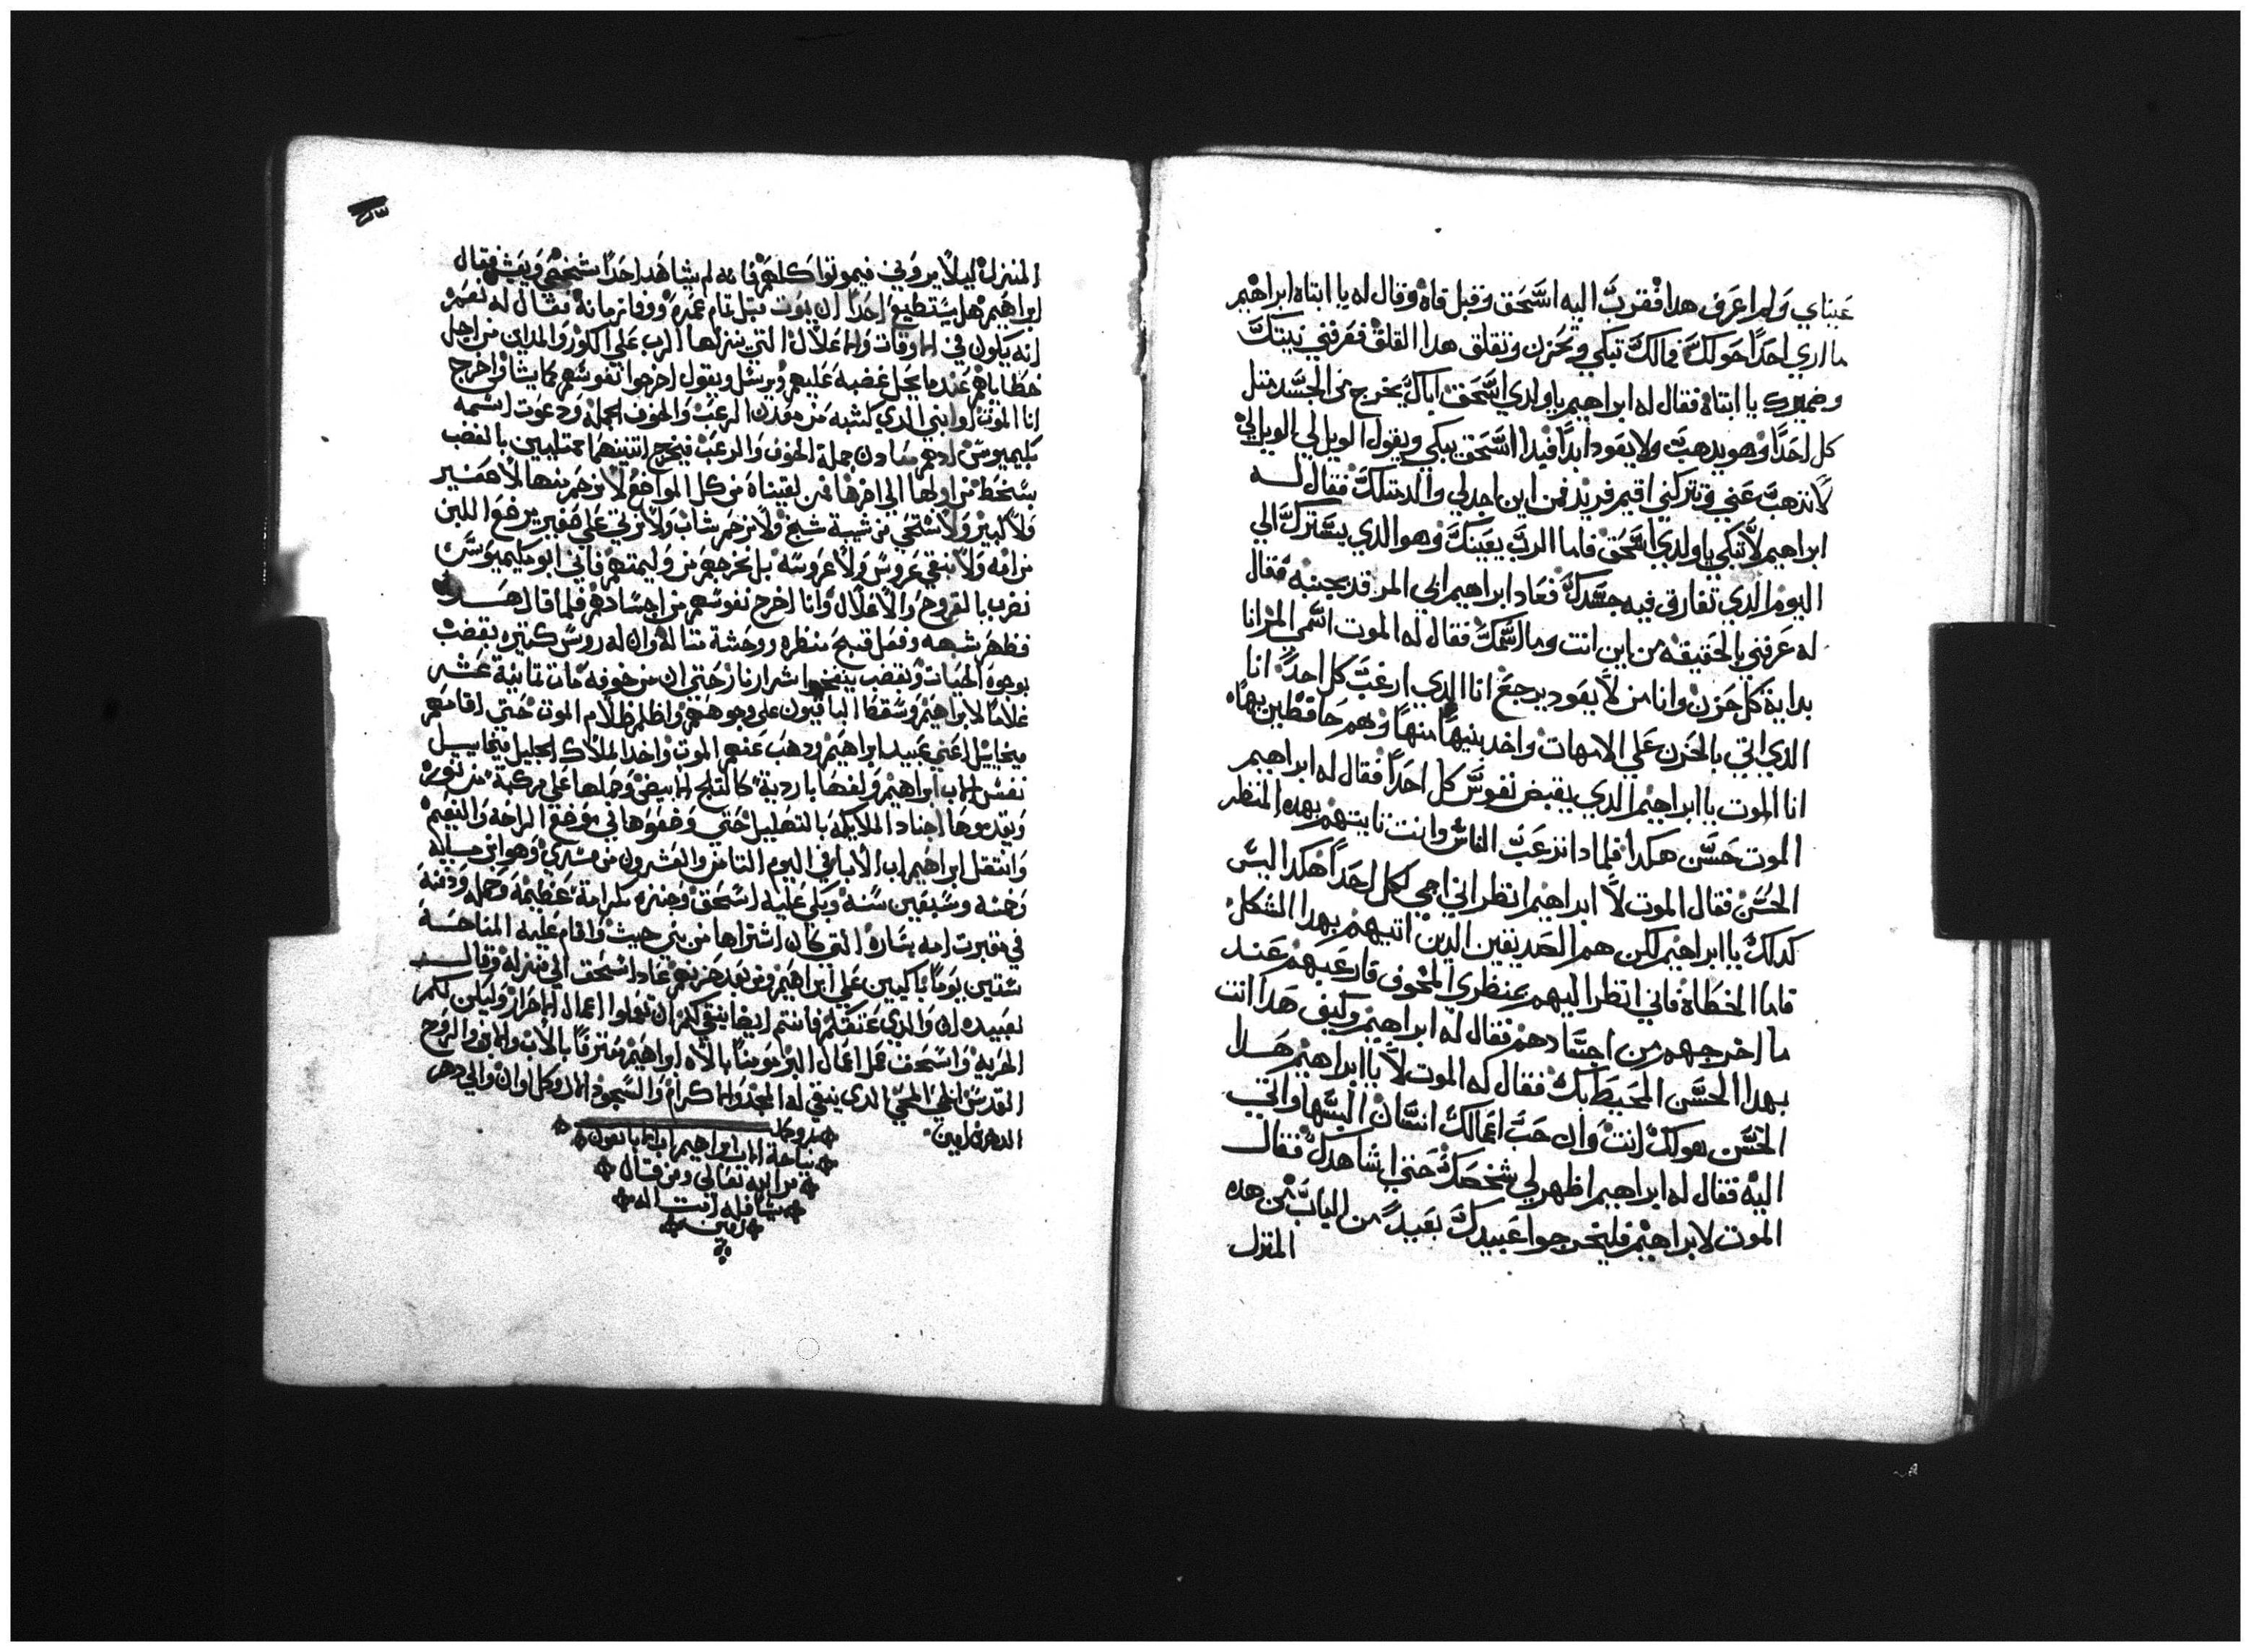 عيناي ولم اعرف هدا فقرب اليه اسحق وقبل فاه وقال له يا ابتاه ابراهيم
ما اري احدا حولك فمالك تبكي وتحزن وتقلق هدا القلق فعرفني نيتك
وضميرك يا ابتاه فقال له ابراهيم يا ولدي اسحق اباك يخرج من الجسد متل
كل احدا وهو يدهب ولا يعود ابدا فبدا اسحق يبكي ويقول الويل لي الويل لي
لا تدهب عني وتتركني اقيم فريد فمن اين اجد لي والد متلك فقال له
ابراهيم لا تبكي يا ولدي اسحق فاما الرب يعينك وهو الدي يسترك الي
اليوم الدي تفارق فيه جسدك فعاد ابراهيم الي المرقد بجبنه فقال
له عرفني بالحقيقه من اين انت وما اسمك فقال له الموت اسمي المر انا
بداية كل حزن وانا من لا يعود يرجع انا الدي ارعب كل احدا انا
الدي اتي بالحزن علي الامهات واخد بنيها منها وهم حافظين بهاه
انا الموت يا ابراهيم الدي يقبض نفوس كل احدا فقال له ابراهيم
الموت حسن هكدا فلمادا تنزعب الناس وانت تايتهم بهده المنظر
الحسن فقال الموت لا ابراهيم انظر اني اجي لكل احدا هكدا ليس
كدلك يا ابراهيم لكن هم الصديقين الدين اتيهم بهدا الشكل
فاما الخطاه فاني انظر اليهم بمنظري المخوف فارعبهم عند
ما اخرجهم من اجسادهم فقال له ابراهيم وكيف هدا انت
بهدا الحسن المحيط بك فقال له الموت لا يا ابراهيم هدا
الحسن هو لك انت وان حب اعمالك انسان البسها واتي
اليه فقال له ابراهيم اظهر لي شخصك حتي اشاهدك فقال
الموت لابراهيم فليخرجوا عبيدك بعيد من الباب من هده
المنزل
المنزل ليلا يروني فيموتوا كلهم فانه لم يشاهد احدا شخصي ويعيش فقال
ابراهيم هل يستطيع احدا ان يموت قبل تمام عمره ووفا زمانه فقال له نعم
انه يكون في الاوقات والاعلال التي ينزلها الرب علي الكور والمداين من اجل
خطاياهم عندما يحل غضبه عليهم ويرسل ويقول اخرجوا نفوسهم كما يشا فاخرج
انا الموت وابني الدي كشبه من معدن الرعب والخوف الجمله ودعوت اسمه
بسخط من اولها الي اخرها فمن لقيناه من كل المواضع لا نرحم منها لا صغير
ولا كبير ولا نستحي من شيبة شيخ ولا نرحم شاب ولا نرتي علي صغير يرضعوا اللبن
من امه ولا نبقي عروس ولا عروسه بل نخرجهم من وليمتهم فاني ابو
نضرب بالقروح والاعلال وانا اخرج نفوسهم من اجسادهم فلما قال هدا
فظهر شبهه وفعل قبح منظره ووحشة متاله وان له روس كتيره بعضت
بوجوه الحيات وبعضت ينفخوا شرار نار حتي ان من خوفه مات تمانية عشر
غلاما لابراهيم وسقط الباقيون علي وجوههم واظلم ظلام الموت حتي اقامهم
ميخاييل اعني عبيد ابراهيم ودهب عنهم الموت واخد الملاك الجليل ميخاييل
نفس الاب ابراهيم ولفها باردية كالتلج الابيض وحملها علي مركبة من نور
ويقدموها اجناد الملايكه بالتهليل حتي وضعوها في موضع الراحه والنعيم
وانتقل ابراهيم اب الابا في اليوم التامن والعشرون من مسري وهو ابن مايه
وخمسه وسبعين سنه وبكي عليه اسحق وجنزه بكرامة عظيمه وحمله ودفنه
في مقبرت امه ساره التي كان اشتراها من بني حيث واقام عليه المناحة
ستين يوما باكيين علي ابراهيم ومن بعد حزنهم عاد اسحق الي منزله وقال
لعبيده ان والدي عتقكم فانتم ايضا ينبغي لكم ان تعملوا اعمال الاحرار وليكن لكم
الحريه واسحق عمل اعمال البر مومنا بالاه ابراهيم معترفا بالاب والابن والروح
القدس المحيي الدي ينبغي له المجد والاكرام والسجود الان وكل اوان والي دهر
الدهرين امين
تم وكمل
نياحة الاب ابراهيم اب الابا بعون
من الله تعالي ومن قال
شيا فله امت اله
امين